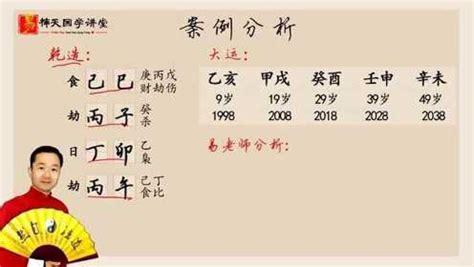 易
择天国学讲堂
案例分析
乾造：
食 己巳 庚丙戊
财劫伤
劫 丙子 癸
杀
日 丁卯 乙
枭
劫 丙午 己丁
食比
大运：
乙亥 甲戌 癸酉 壬申 辛未
9岁 19岁 29岁 39岁 49岁
1998 2008 2018 2028 2038
易老师分析：